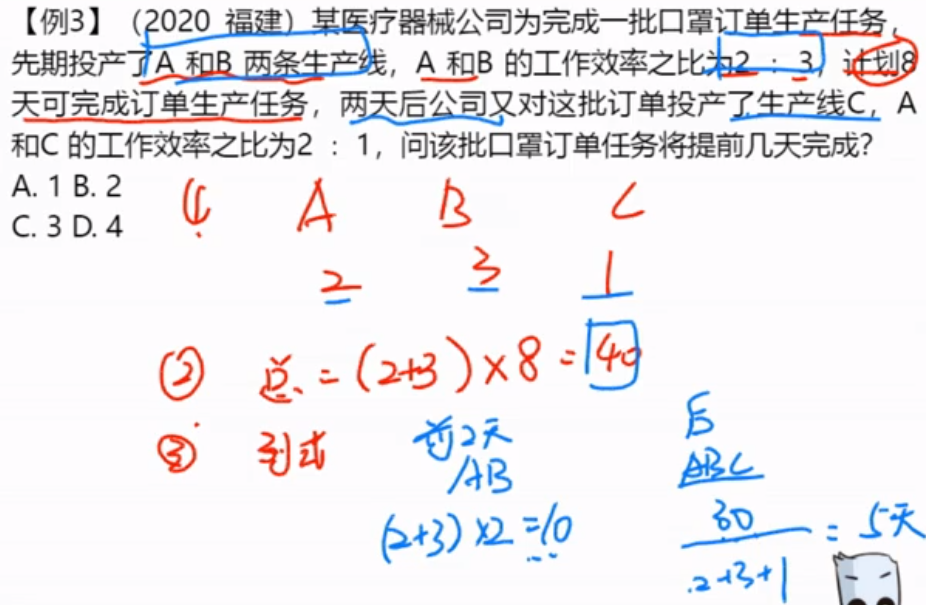 【例3】（2020 福建）某医疗器械公司为完成一批口罩订单生产任务，
先期投产了A 和B 两条生产线，A 和B 的工作效率之比为2 ：3，计划8
天可完成订单生产任务，两天后公司又对这批订单投产了生产线C，A
和C 的工作效率之比为2 ：1，问该批口罩订单任务将提前几天完成？
A. 1 B. 2
C. 3 D. 4
① A B C
2 3 1
② 总 = (2+3)×8 = 40
③ 列式 前2天 后
AB ABC
(2+3)×2=10 30/2+3+1 = 5天